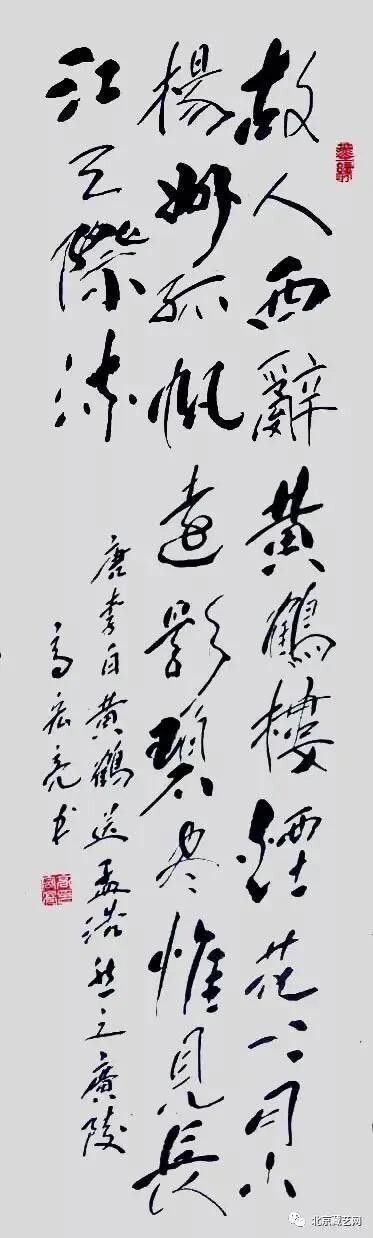 故人西辭黃鶴樓煙花三月下
楊州孤帆遠影碧尽惟見長
江天際流
唐李白黃鶴送孟浩然之廣陵
高宏亮书
北京藏艺网